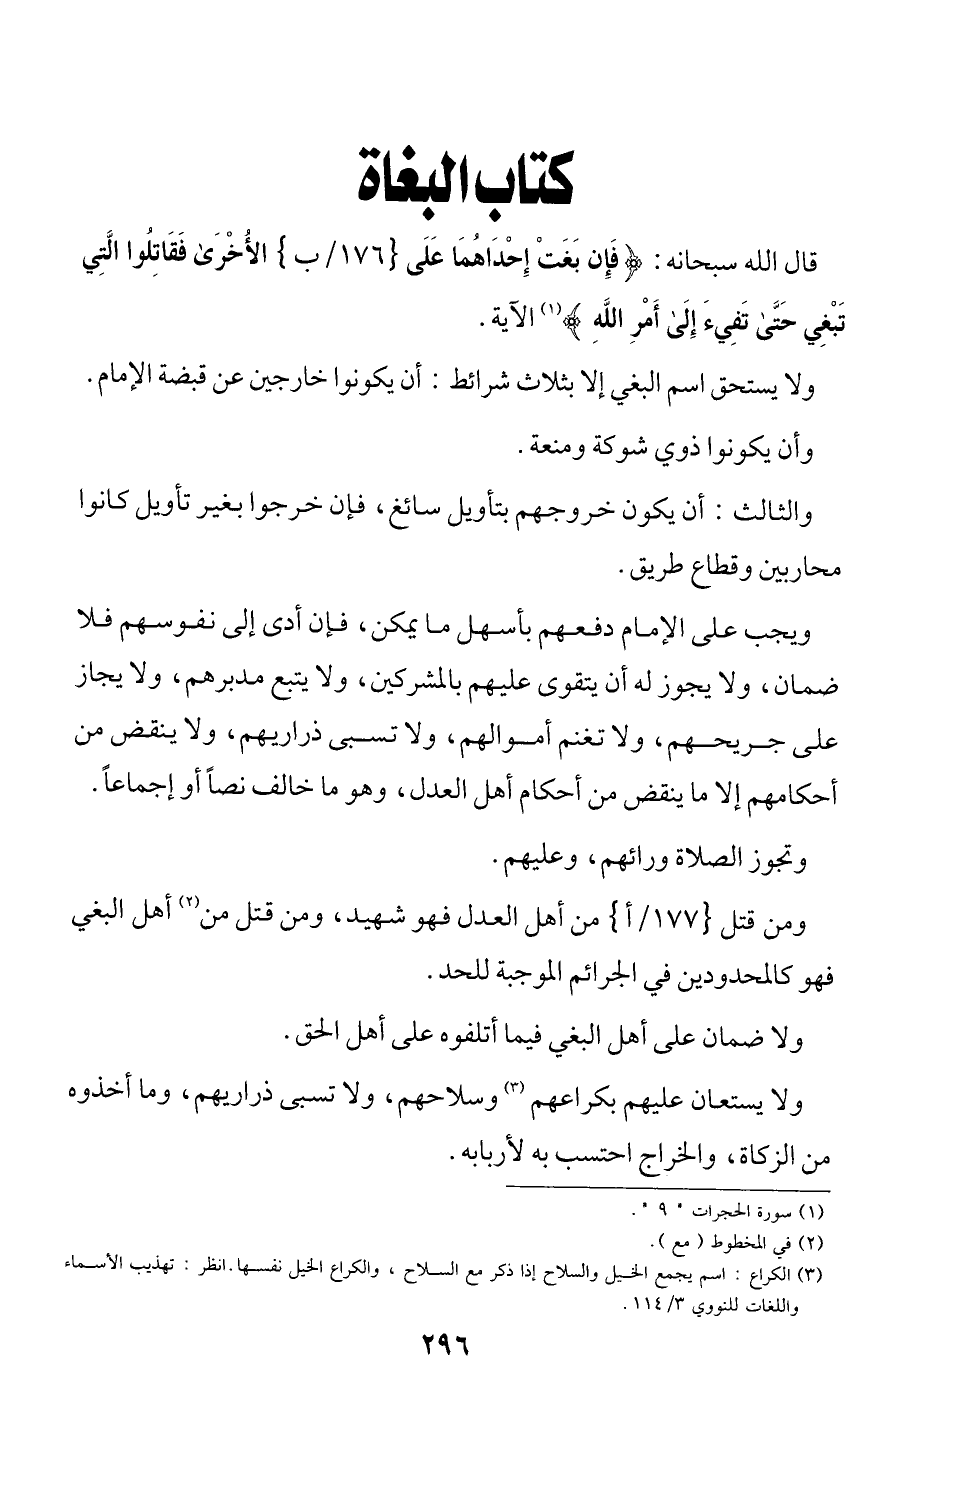 كتاب البغاة
قال الله سبحانه : ﴿ فَإِن بَغَتْ إِحْدَاهُمَا عَلَى {١٧٦/ ب } الأُخْرَىٰ فَقَاتِلُوا الَّتِي
تَبْغِي حَتَّىٰ تَفِيءَ إِلَىٰ أَمْرِ اللَّهِ ﴾(١) الآية .
ولا يستحق اسم البغي إلا بثلاث شرائط : أن يكونوا خارجين عن قبضة الإمام .
وأن يكونوا ذوي شوكة ومنعة .
والثالث : أن يكون خروجهم بتأويل سائغ ، فإن خرجوا بغير تأويل كانوا
محاربين وقطاع طريق .
ويجب على الإمام دفعهم بأسهل ما يمكن ، فإن أدى إلى نفوسهم فلا
ضمان ، ولا يجوز له أن يتقوى عليهم بالمشركين ، ولا يتبع مدبرهم ، ولا يجاز
على جريحهم ، ولا تغنم أموالهم ، ولا تسبى ذراريهم ، ولا ينقض من
أحكامهم إلا ما ينقض من أحكام أهل العدل ، وهو ما خالف نصاً أو إجماعاً .
وتجوز الصلاة ورائهم ، وعليهم .
ومن قتل {١٧٧/ أ} من أهل العدل فهو شهيد ، ومن قتل من(٢) أهل البغي
فهو كالمحدودين في الجرائم الموجبة للحد .
ولا ضمان على أهل البغي فيما أتلفوه على أهل الحق .
ولا يستعان عليهم بكراعهم (٣) وسلاحهم ، ولا تسبى ذراريهم ، وما أخذوه
من الزكاة ، والخراج احتسب به لأربابه .
(١) سورة الحجرات " ٩ " .
(٢) في المخطوط ( مع ) .
(٣) الكراع : اسم يجمع الخيل والسلاح إذا ذكر مع السلاح ، والكراع الخيل نفسها . انظر : تهذيب الأسماء
واللغات للنووي ٣/ ١١٤ .
٢٩٦